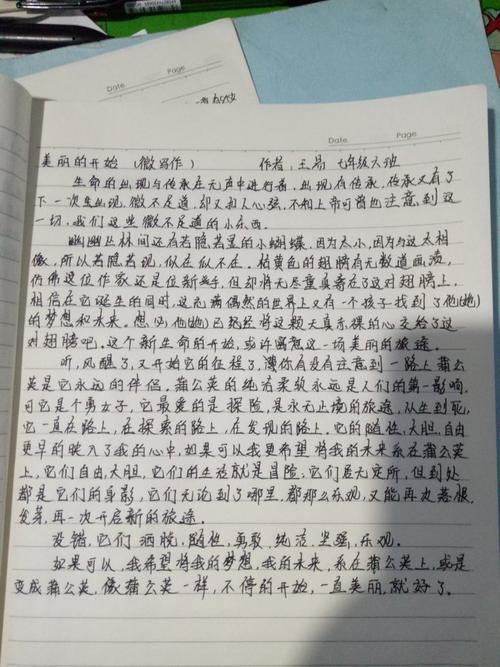 Date Page
Date Page
美丽的开始 (微写作) 作者:王易 七年级六班
生命的出现与传承在无声中进行着,出现有传承,传承又有了
下一次生出现,微不足道,却又扣人心弦,不知上帝可曾也注意到这
一切,我们这些微不足道的小东西。
幽幽丛林间还有若隐若显的小蝴蝶,因为太小,因为与这太相
像,所以若隐若现,似在似不在。枯黄色的翅膀有无数道画渍,
仿佛这位作家还是位新手,但却将无尽童真寄在了这对翅膀上,
相信在它诞生的同时,这充满偶然的世界上又有一个孩子找到了他(她)
的梦想和未来。想必他(她)已经将这颗天真赤裸的心交给了这
对翅膀吧。这个新生命的开始,或许寓意这一场美丽的旅途。
听,风醒了,又开始它的征程了,溥你有没有注意到一路上蒲公
英是它永远的伴侣。蒲公英的纯洁柔软永远是人们的第一影响,
可它是个勇女子,它最爱的是探险,是永无止境的旅途,从生到死,
它一直在路上,在探索的路上,在发现的路上。它的随性,大胆,自由
更早的映入了我的心中,如果可以我更希望将我的未来系在蒲公英
上,它们自由,大胆,它们的生活就是冒险,它们居无定所,但到处
都是它们的身影,它们无论到了哪里,都那么乐观,又能再次落根,
发芽,再一次开启新的旅途。
没错,它们洒脱,随性,勇敢,纯洁,坚强,乐观。
如果可以,我希望将我的梦想,我的未来,系在蒲公英上,或是
变成蒲公英,像蒲公英一样,不停的开始,一直美丽,就好了。